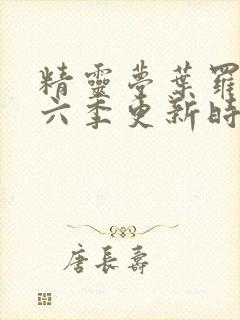 精靈夢葉羅
六季更新時
唐長壽